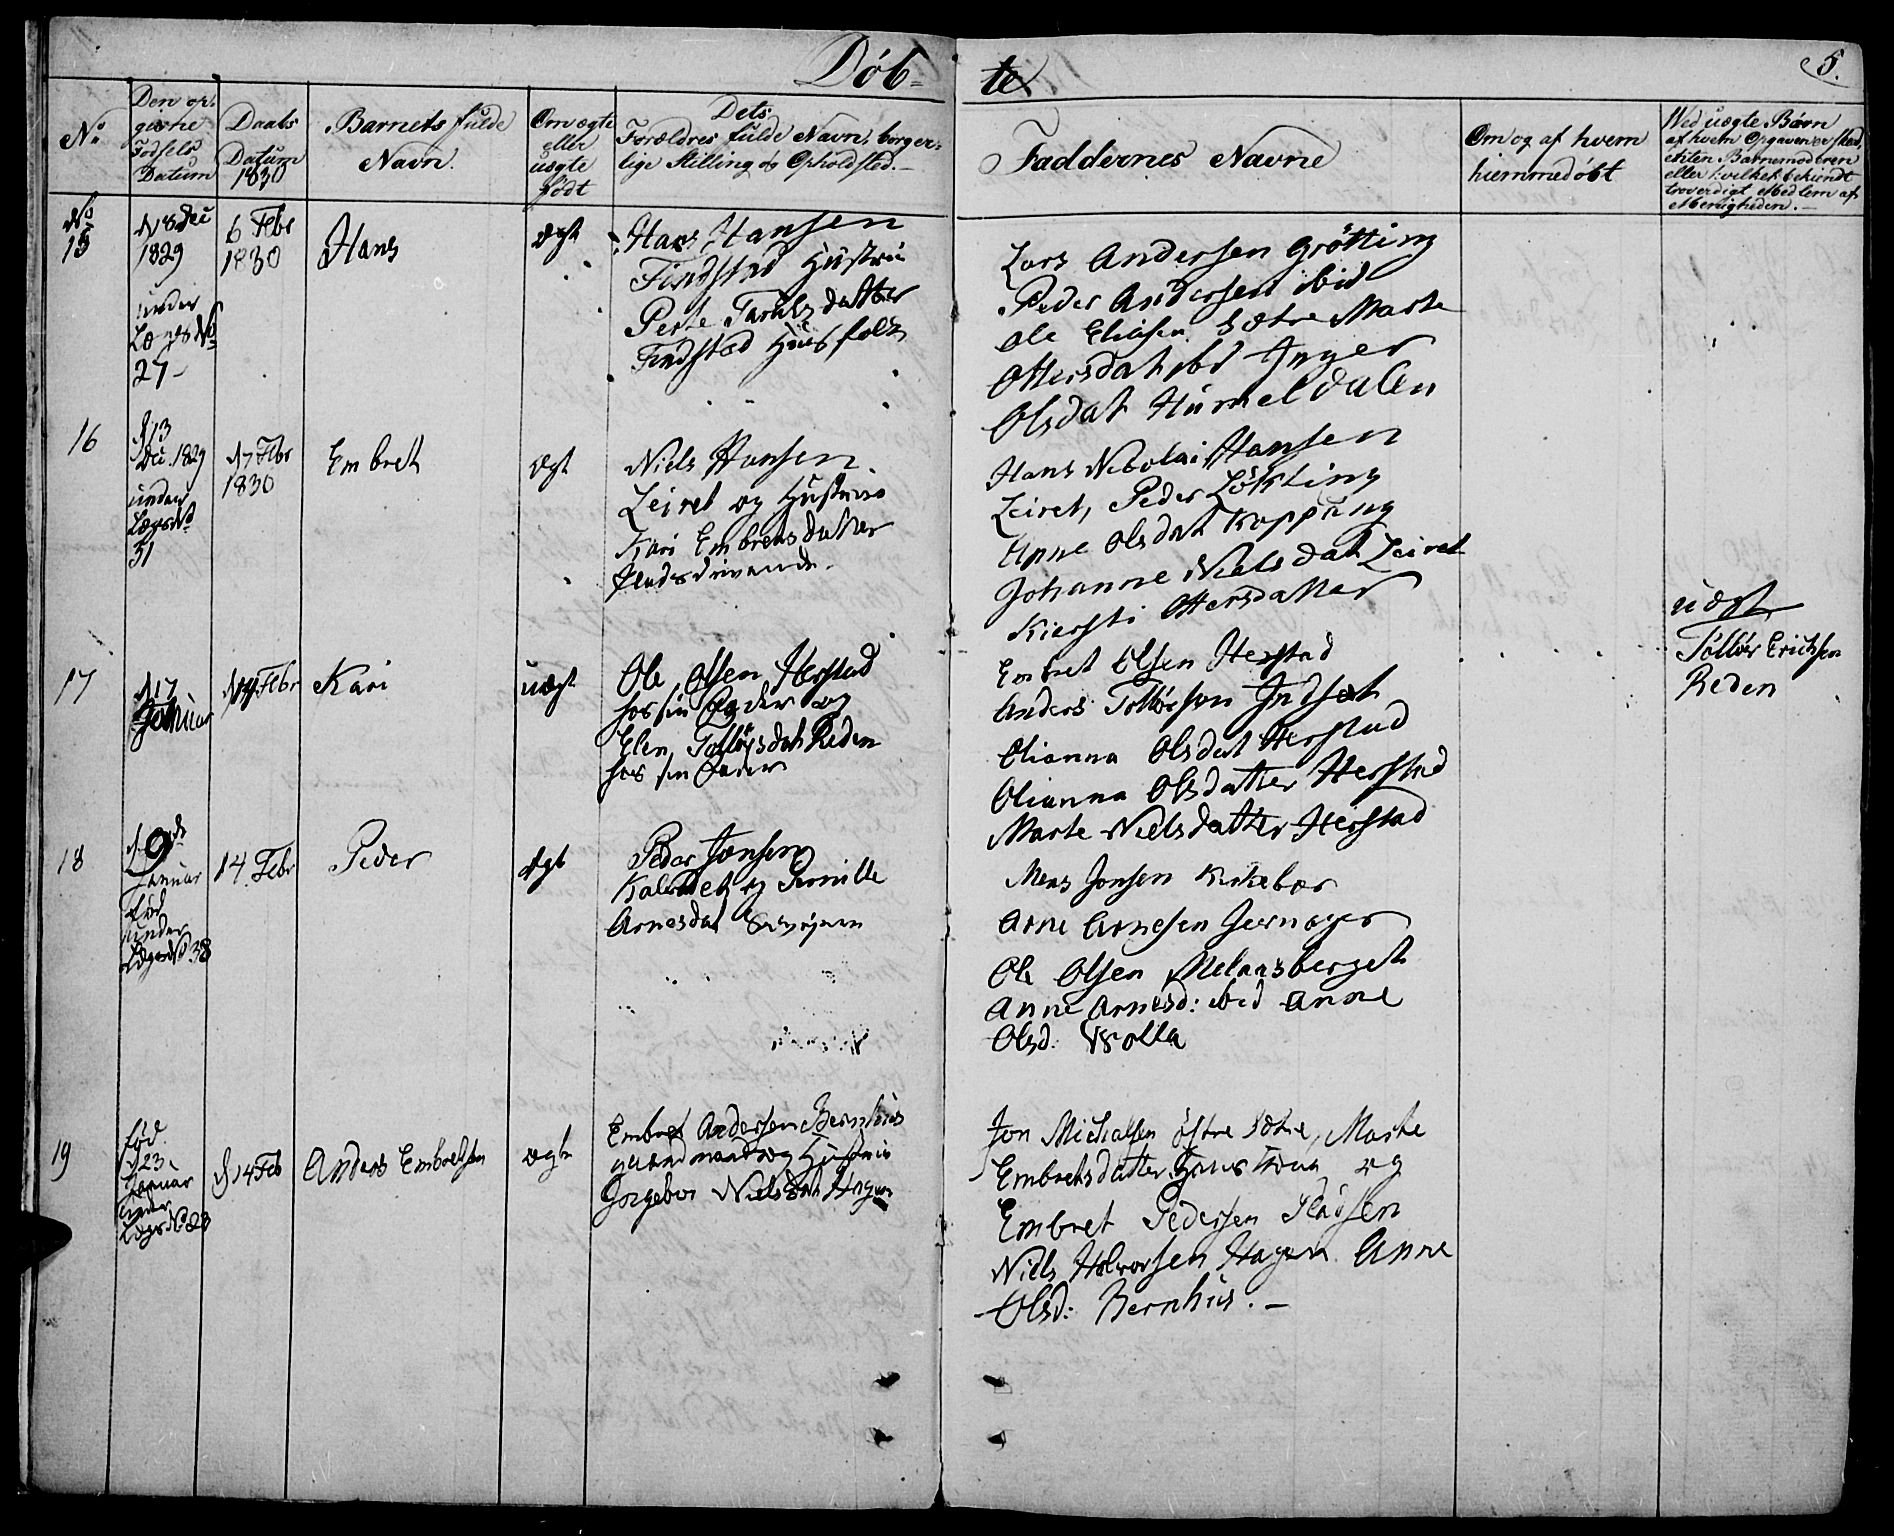 Döb-
te
5.
No
Den op-
givne
Födsels
Datum
Daabs
Datum
1830
Barnets fulde
Navn.
Om ægte
eller
uægte
född
Dets
Forældres fulde Navn, borger-
lige Stilling og Opholdsted.-
Faddernes Navne
Om og af hvem
hiemmedöbt
Ved uægte Börn
af hvem Opgaven er skeed,
enten Barnemoderen
eller hvilket bekiendt
troværdigt Medlem af
Menigheden.-
No
15
d 18 Dec
1829
under
Lægs No
27-
6 Febr
1830
Hans
ægt
Hans Hansen
Findstad Hustru
Perte datter
Findstad Huusfolk
Lars Andersen Grötting
Peder Andersen ibid
Ole Eliasen Sætre Marte
Ottersdat ibd Inger
Olsdat Hummeldalen
16
d 13
Dec. 1829
under
Lægs No
31
d 7 Febr
1830
Embret
ægt
Niels Hansen
Leiret og Hustrue
Kari Embretsdatter
Hans Nicolai Hansen
Leiret, Peder
Anne Olsdat Koppang
Johanne Nielsdat Leiret
Kiersti Ottersdatter
17
d 17
Januar
d 14 Febr
Kari
uægt
Ole Olsen Herstad
hos sin Fader og
Elen Tollöfsdat Reden
hos sin Fader
Embret Olsen Herstad
Anders Tollöfson Indset
Olianna Olsdat Herstad
Olianna Olsdatter Herstad
Marte Nielsdatter Herstad
uægt
Tollöv Erichsen
Reden
18
d. 9de
Januar
föd
under
Lægs No 38
14. Febr
Peder
ægt
Peder Jonsen
og Pernille
Arnesdat
Mens Jonsen Kirkebær
Arne Arnesen
Ole Olsen Melaasberget
Anne Arnesd: ibid Anne
Olsd: Volla
19
föd
d 23
Januar
under
Lægs No 23
d 14 Feb
Anders Embretsen
ægte
Embret Andersen Bernhus
gaardmand og Hustrue
Ingebor Nielsdat Hagen
Jon Michalsen östre Sætre, Marte
Embretsdatter og
Embret Pedersen
Niels Halvorsen Hagen Anne
Olsd: Bernhus.-